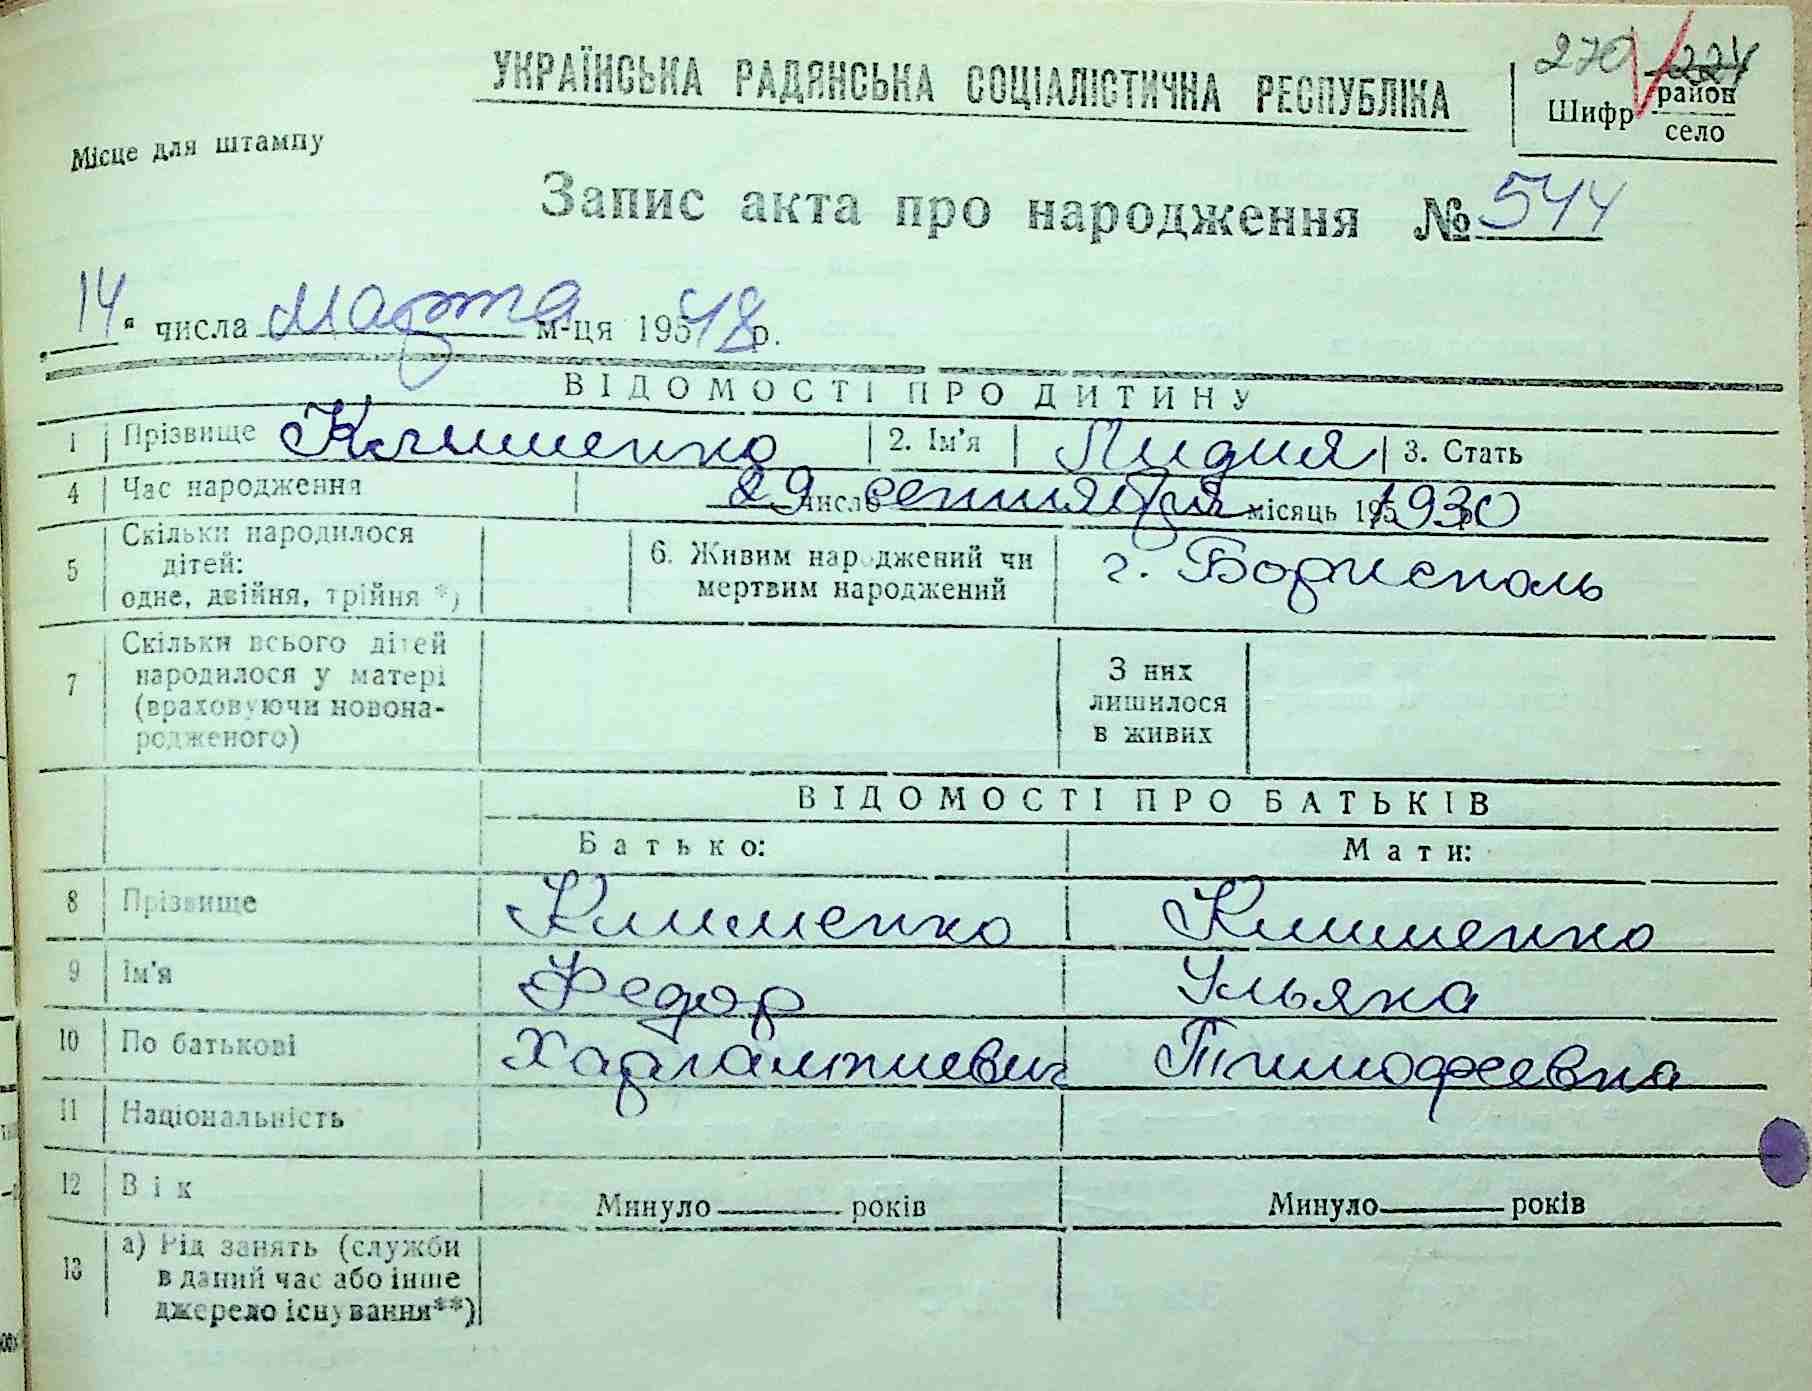 270 224
УКРАЇНСЬКА РАДЯНСЬКА СОЦІАЛІСТИЧНА РЕСПУБЛІКА
Шифр район
село
Місце для штампу
Запис акта про народження № 544
14 " числа Марта м-ця 195 48 р.
ВІДОМОСТІ ПРО ДИТИНУ
1 Прізвище Клименко 2. Ім'я Лидия 3. Стать
4 Час народження 29 число сентября місяць 195 1930
5 Скільки народилося дітей: одне, двійня, трійня *) 6. Живим народжений чи мертвим народжений г. Борисполь
7 Скільки всього дітей народилося у матері (враховуючи новонародженого) З них лишилося в живих
ВІДОМОСТІ ПРО БАТЬКІВ
Батько: Мати:
8 Прізвище Клименко Клименко
9 Ім'я Федор Ульяна
10 По батькові Харлампиевич Тимофеевна
11 Національність
12 Вік Минуло років Минуло років
13 а) Рід занять (служби в даний час або інше джерело існування**)